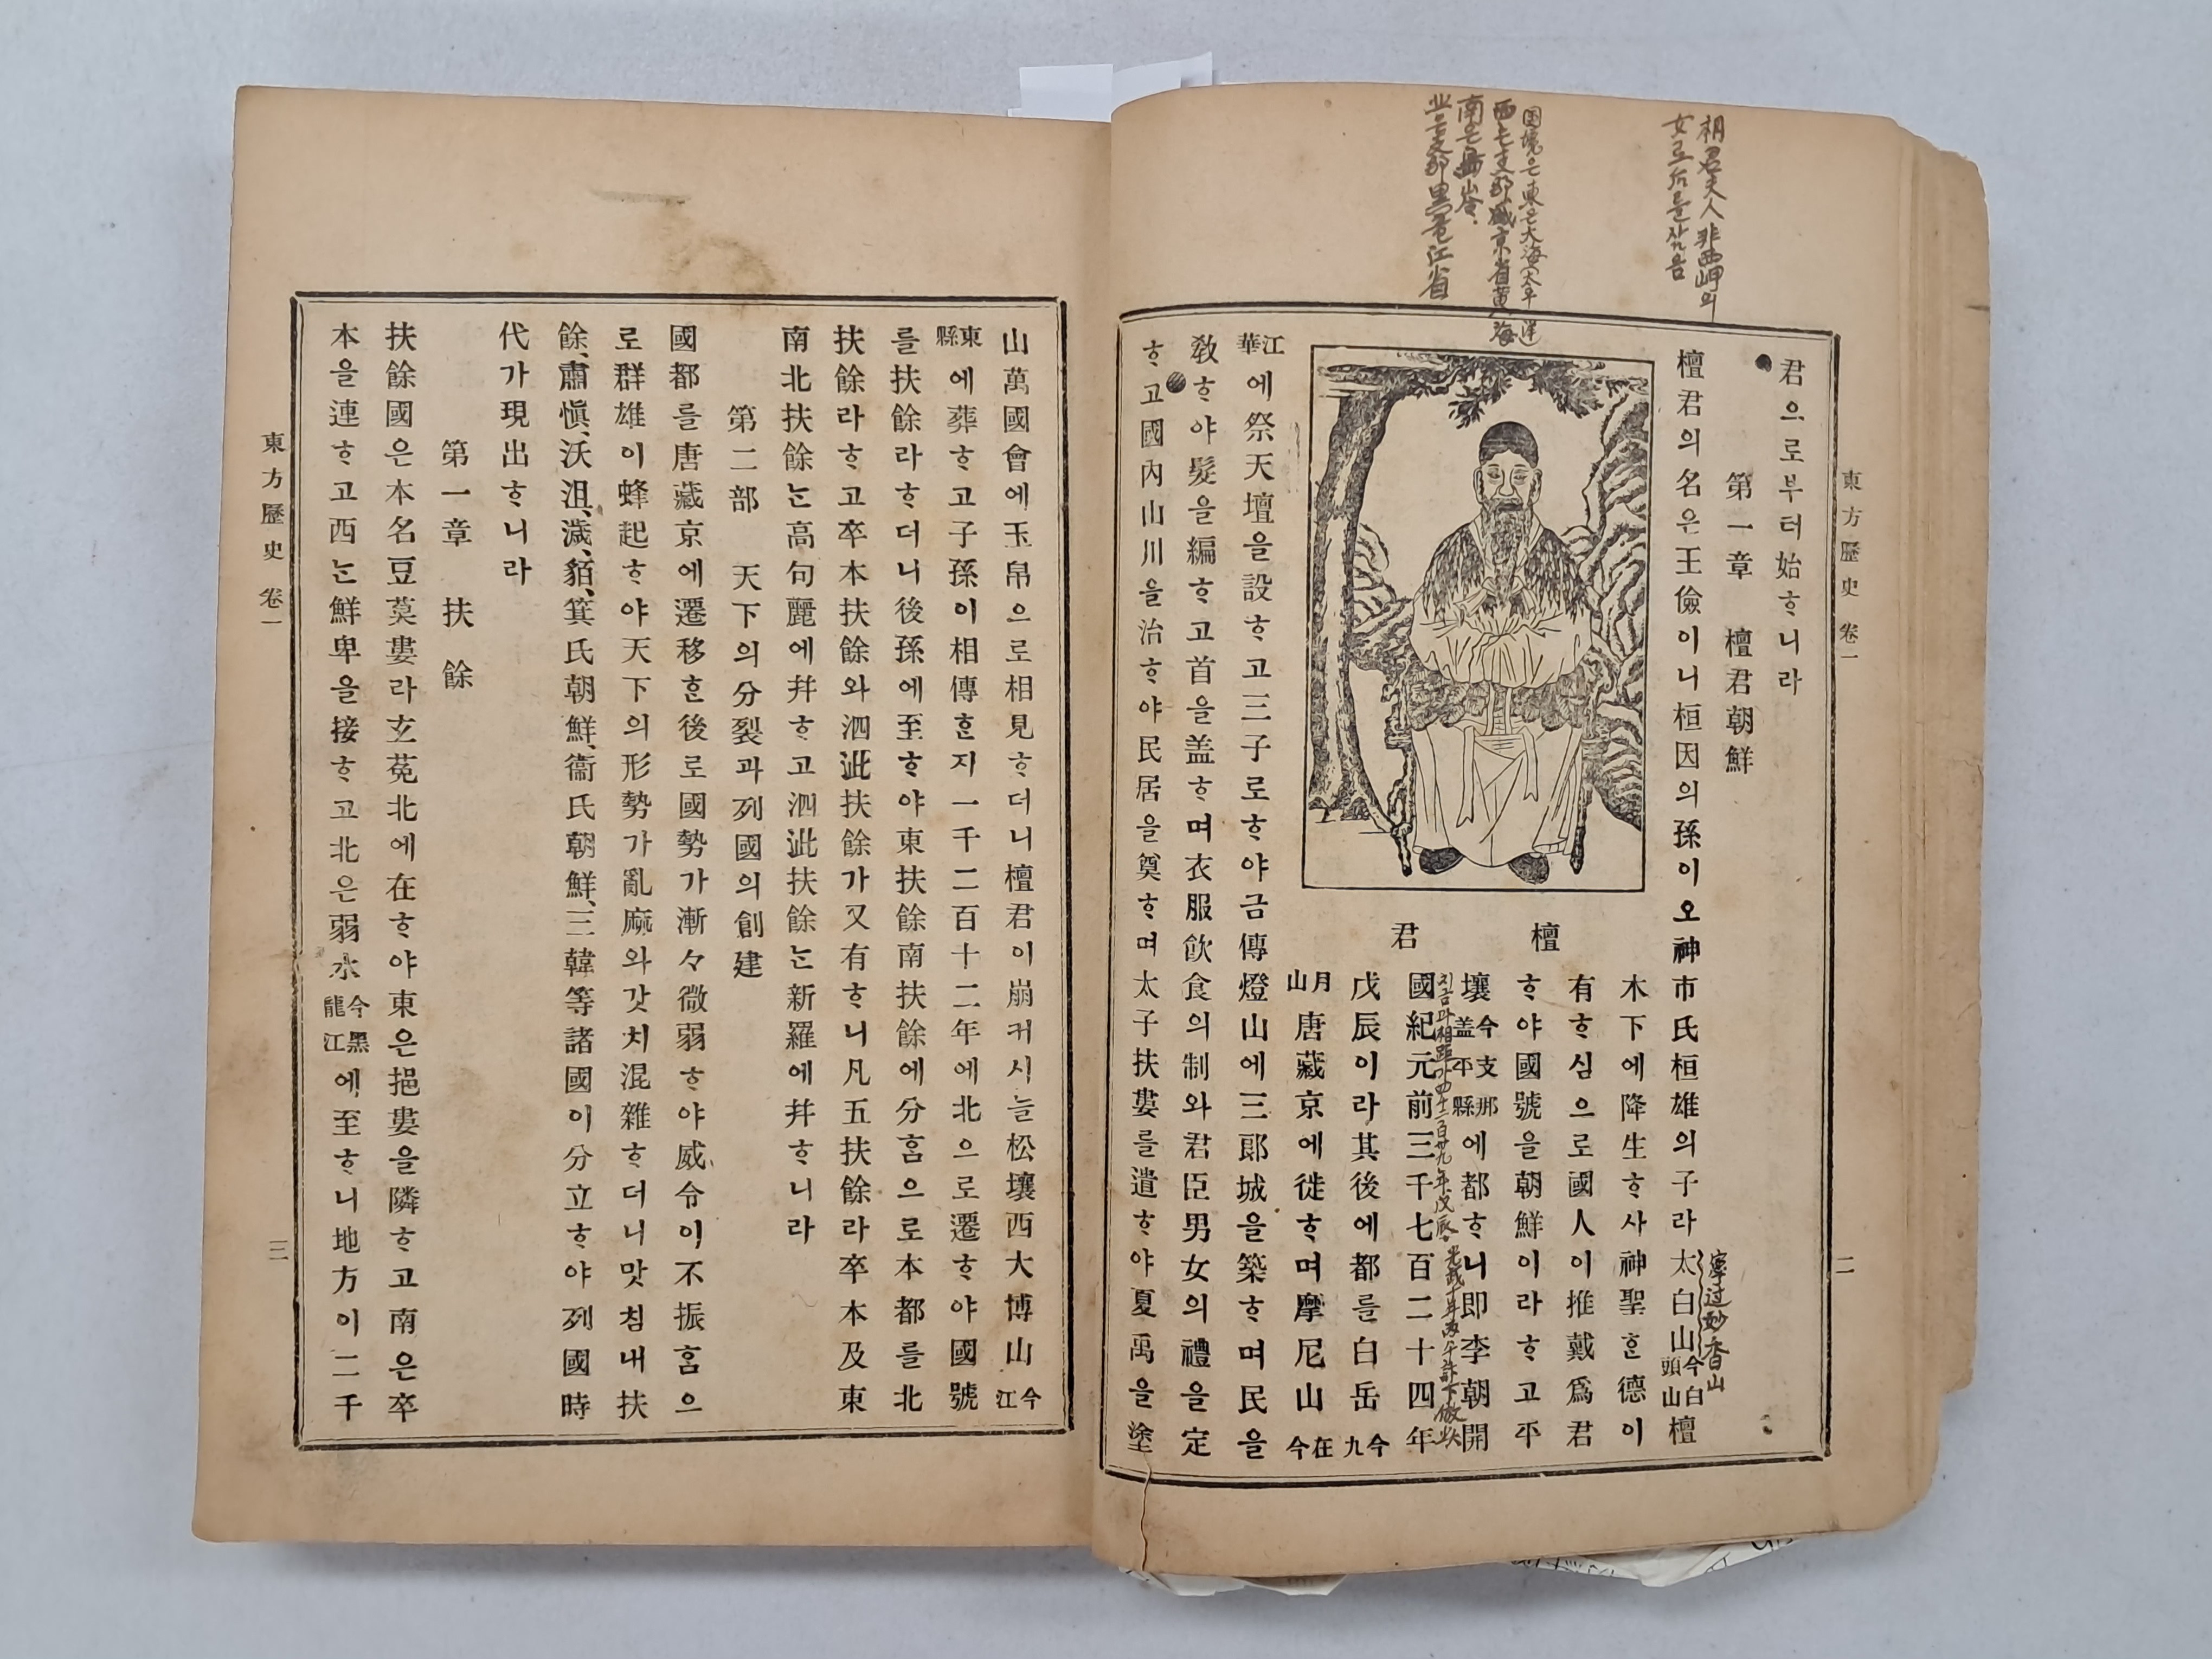 君夫人非西岬의
女로后를삼음
国境은東은大海(太平洋
西는支那盛京省黃海
南은鳥岺
北은支那黑竜江省
東方歷史 卷一
二
君으로부터始ᄒᆞ니라
第一章 檀君朝鮮
檀君의名은王儉이니桓因의孫이오神市氏桓雄의子라太白山今白頭山檀
寧辺妙香山
木下에降生ᄒᆞ사神聖ᄒᆞᆫ德이
有ᄒᆞ심으로國人이推戴爲君
ᄒᆞ야國號을朝鮮이라ᄒᆞ고平
壤今支那盖平縣에都ᄒᆞ니即李朝開
지금과相距가四千二百卅九年戊辰光武十年丙午計下倣此
國紀元前三千七百二十四年
戊辰이라其後에都를白岳今九
月山唐藏京에徙ᄒᆞ며摩尼山在今
檀君
江華에祭天壇을設ᄒᆞ고三子로ᄒᆞ야금傳燈山에三郞城을築ᄒᆞ며民을
敎ᄒᆞ야髮을編ᄒᆞ고首을盖ᄒᆞ며衣服飮食의制와君臣男女의禮을定
ᄒᆞ고國內山川을治ᄒᆞ야民居을奠ᄒᆞ며太子扶婁를遣ᄒᆞ야夏禹을塗
山萬國會에玉帛으로相見ᄒᆞ더니檀君이崩커시늘松壤西大博山今江
東縣에葬ᄒᆞ고子孫이相傳ᄒᆞᆫ지一千二百十二年에北으로遷ᄒᆞ야國號
를扶餘라ᄒᆞ더니後孫에至ᄒᆞ야東扶餘南扶餘에分ᄒᆞᆷ으로本都를北
扶餘라ᄒᆞ고卒本扶餘와泗沘扶餘가又有ᄒᆞ니凡五扶餘라卒本及東
南北扶餘ᄂᆞᆫ高句麗에幷ᄒᆞ고泗沘扶餘ᄂᆞᆫ新羅에幷ᄒᆞ니라
第二部 天下의分裂과列國의創建
國都를唐藏京에遷移ᄒᆞᆫ後로國勢가漸々微弱ᄒᆞ야威令이不振ᄒᆞᆷ으
로群雄이蜂起ᄒᆞ야天下의形勢가亂麻와갓치混雜ᄒᆞ더니맛침내扶
餘、肅愼、沃沮、濊、貊、箕氏朝鮮、衞氏朝鮮、三韓等諸國이分立ᄒᆞ야列國時
代가現出ᄒᆞ니라
第一章 扶餘
扶餘國은本名豆莫婁라玄菟北에在ᄒᆞ야東은挹婁을隣ᄒᆞ고南은卒
本을連ᄒᆞ고西ᄂᆞᆫ鮮卑을接ᄒᆞ고北은弱水今黑龍江에至ᄒᆞ니地方이二千
東方歷史 卷一
三